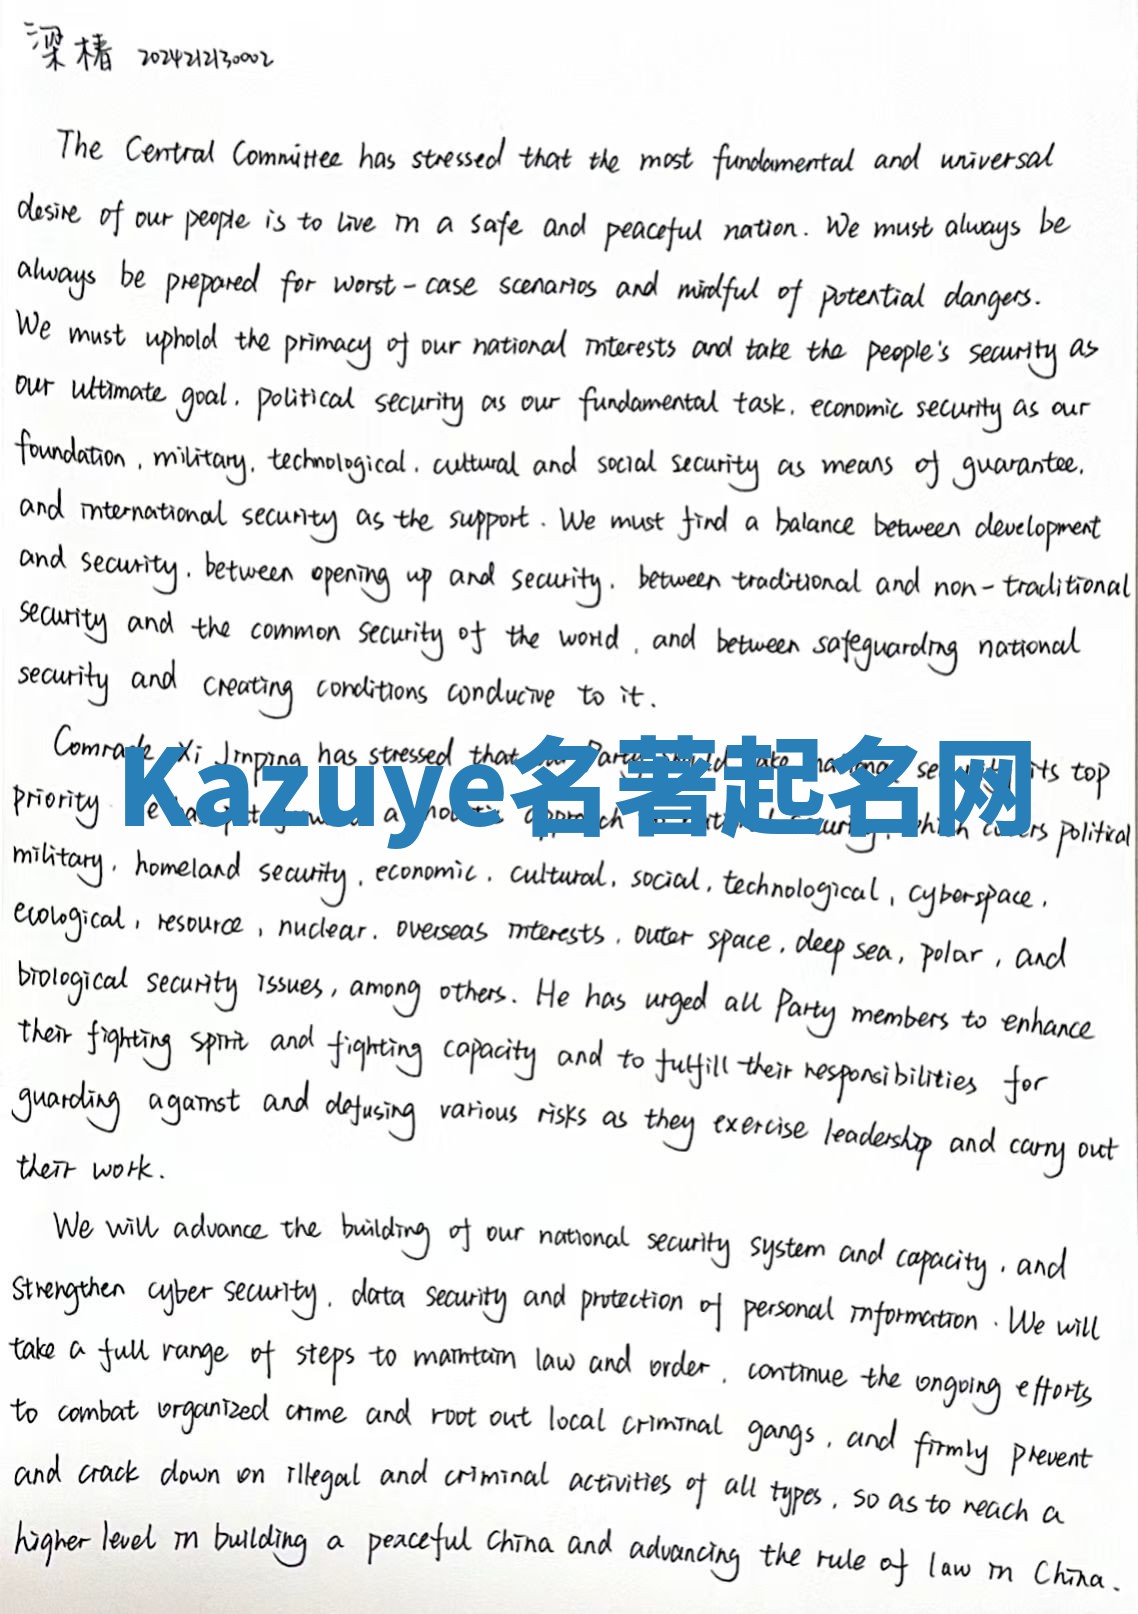 梁椿 2024212130002
The Central Committee has stressed that the most fundamental and universal
desire of our people is to live in a safe and peaceful nation. We must always be
always be prepared for worst-case scenarios and mindful of potential dangers.
We must uphold the primacy of our national interests and take the people's security as
our ultimate goal, political security as our fundamental task, economic security as our
foundation, military, technological, cultural and social security as means of guarantee,
and international security as the support. We must find a balance between development
and security, between opening up and security, between traditional and non-traditional
security and the common security of the world, and between safeguarding national
security and creating conditions conducive to it.
Comrade Xi Jinping has stressed that Party its top
Kazuye名著起名网
priority a political
military, homeland security, economic, cultural, social, technological, cyberspace,
ecological, resource, nuclear, overseas interests, outer space, deep sea, polar, and
biological security issues, among others. He has urged all Party members to enhance
their fighting spirit and fighting capacity and to fulfill their responsibilities for
guarding against and defusing various risks as they exercise leadership and carry out
their work.
We will advance the building of our national security system and capacity, and
strengthen cyber security, data security and protection of personal information. We will
take a full range of steps to maintain law and order, continue the ongoing efforts
to combat organized crime and root out local criminal gangs, and firmly prevent
and crack down on illegal and criminal activities of all types, so as to reach a
higher level in building a peaceful China and advancing the rule of law in China.